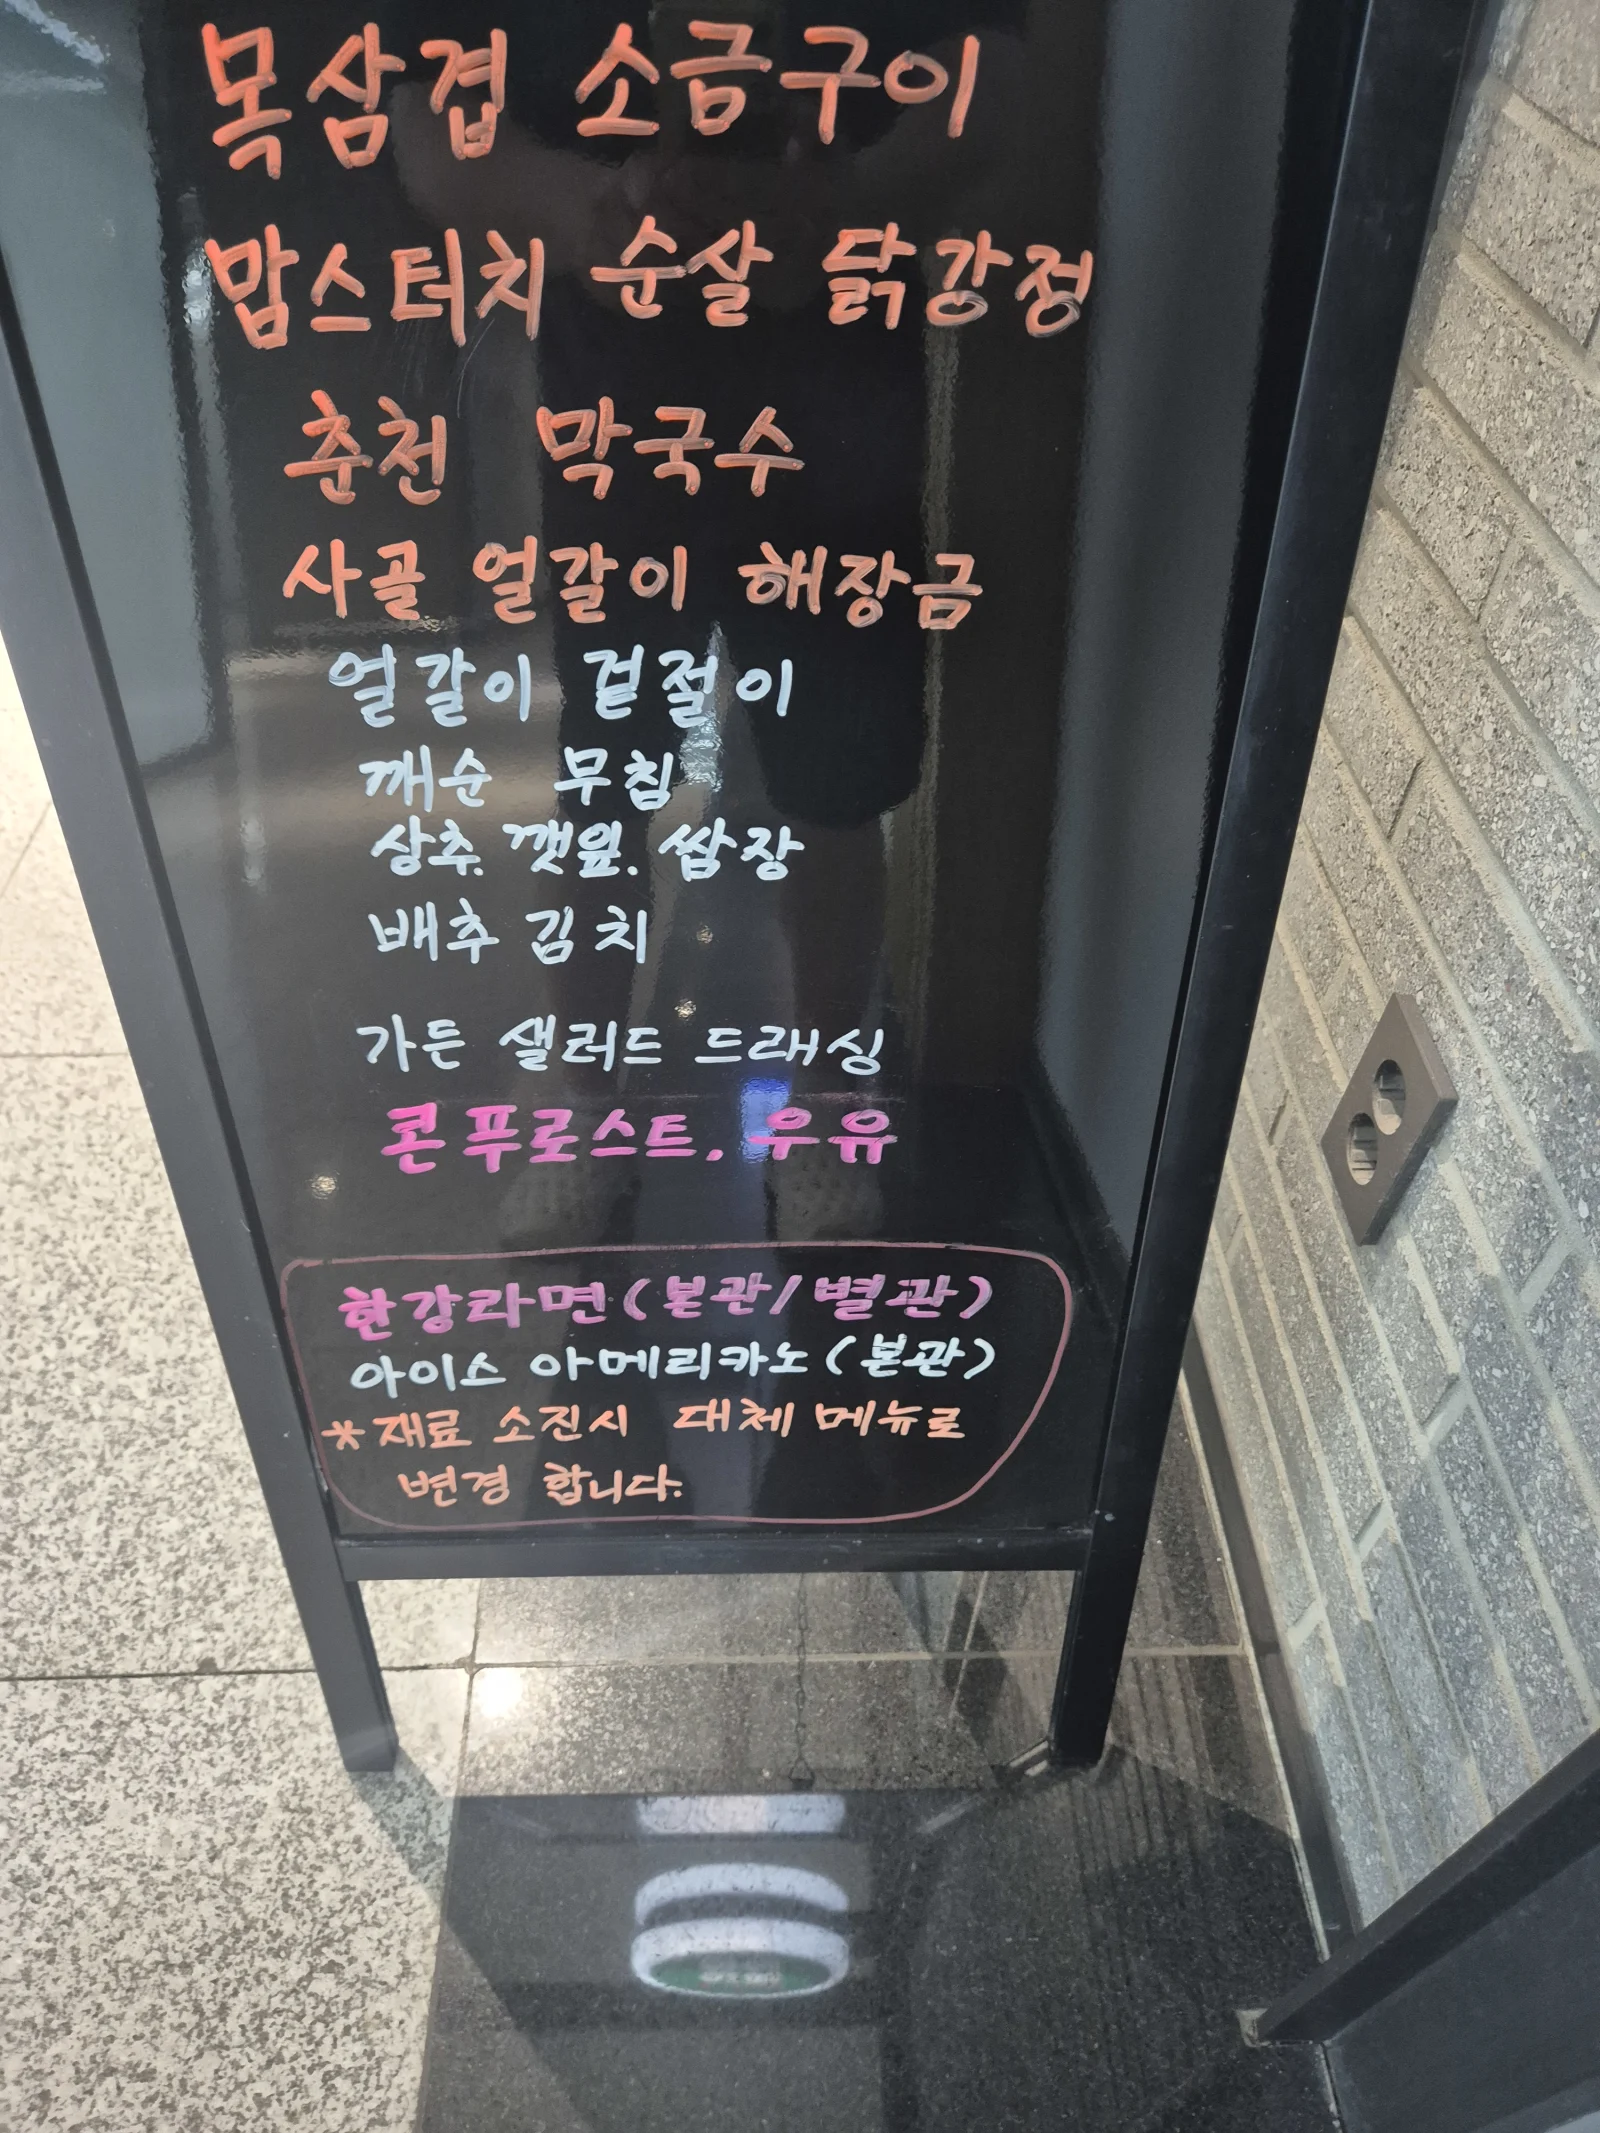 목삼겹 소금구이
맘스터치 순살 닭강정
춘천 막국수
사골 얼갈이 해장금
얼갈이 겉절이
깨순 무침
상추. 깻잎. 쌈장
배추김치
가든 샐러드 드래싱
콘푸로스트. 우유
한강라면(본관/별관)
아이스 아메리카노(본관)
*재료 소진시 대체 메뉴로
변경 합니다.